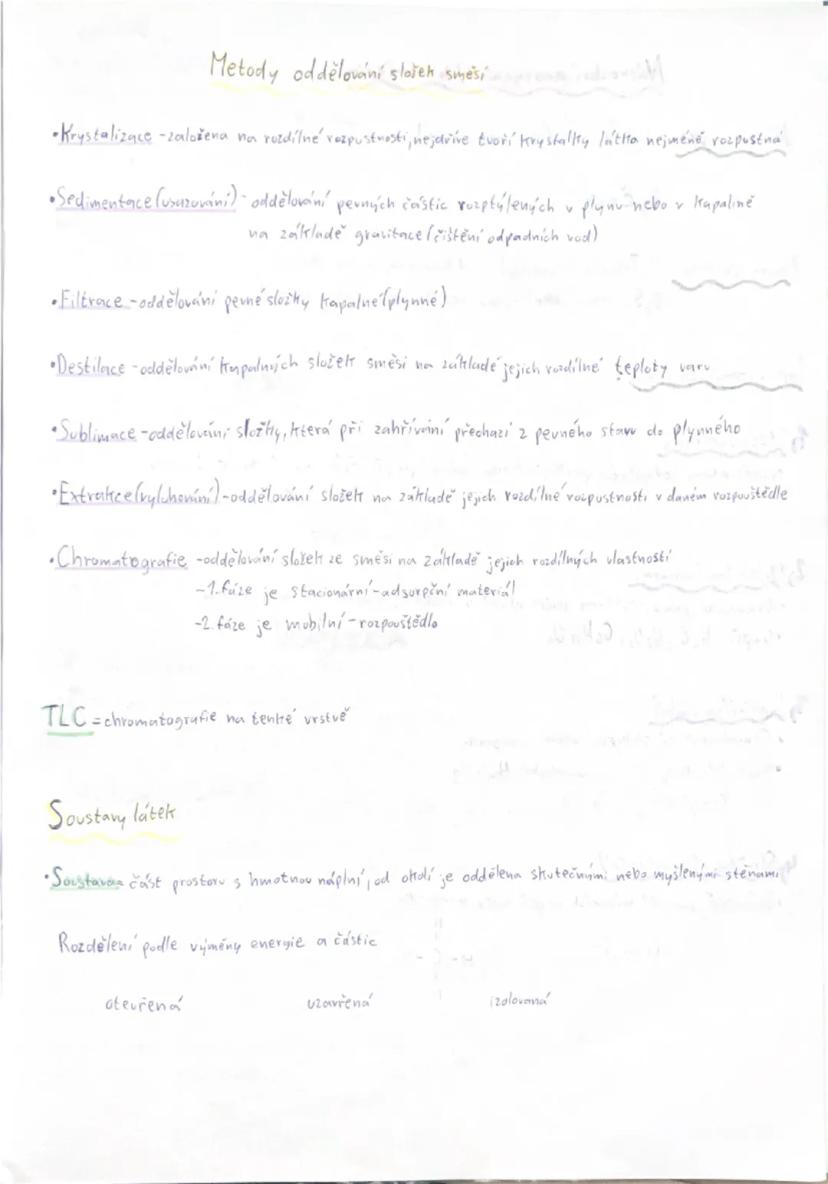 Metody oddělování složek směsí
•Krystalizace -založena na rozdílné rozpustnosti, nejdříve tvoří krystalky látka nejméně rozpustná
•Sedimentace (usazování) - oddělování pevných částic rozptýlených v plynu nebo v kapalině
na základě gravitace (čištění odpadních vod)
•Filtrace -oddělování pevné složky kapalné (plynné)
•Destilace -oddělování kapalných složek směsi na základě jejich rozdílné teploty varu
•Sublimace -oddělování složky, která při zahřívání přechází z pevného stavu do plynného
•Extrakce (vyluhování) -oddělování složek na základě jejich rozdílné rozpustnosti v daném rozpouštědle
•Chromatografie -oddělování složek ze směsi na základě jejich rozdílných vlastností
-1. fáze je stacionární -adsorpční materiál
-2. fáze je mobilní -rozpouštědlo
TLC = chromatografie na tenké vrstvě
Soustavy látek
•Soustava= část prostoru s hmotnou náplní, od okolí je oddělena skutečnými nebo myšlenými stěnami
Rozdělení podle výměny energie a částic
otevřená uzavřená izolovaná